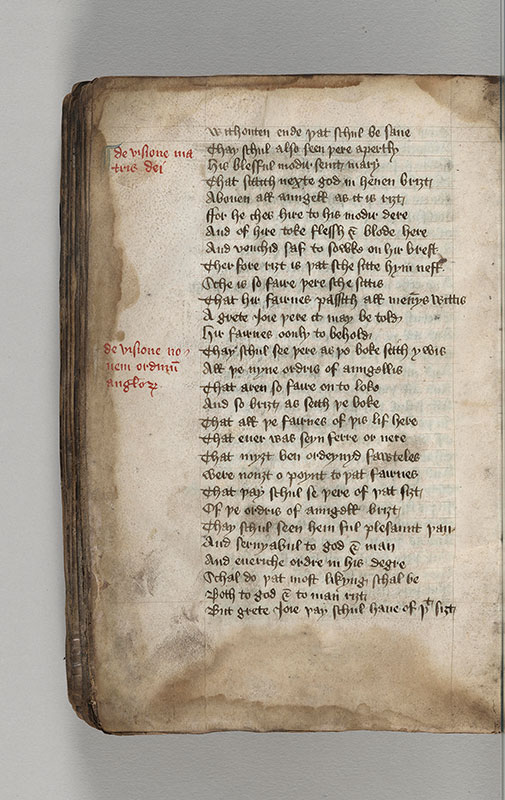 Withouten ende þat schul be saue
de visione ma
tris dei
Thay schul also seen þere aperthy
His blesful modir seint mary
That sittith nexte god in heuen briȝt
Abouen all aungell as it is riȝt
ffor he ches hire to his modir dere
And of hire toke flessh & blode here
And vouchid saf to sowke on hir brest
Therfore riȝt is þat sche sitte hym nest
Sche is so faire þere sche sittis
That hir fairnes passith all mennys wittis
A grete Joie þere it may be told
Hir fairnes oonly to behold
de visione no
uem ordinum
angelorum
Thay schul see þere as þo boke seith y wis
All þe nyne ordris of aungellis
That aren so faire on to loke
And so briȝt as seith þe boke
That all þe fairnes of þis lif here
That euer was seyn ferre or nere
That myȝt ben ordeynyd fawteles
Were nouȝt o poynt to þat fairnes
That þay schul se þere of þat siȝt
Of þe ordris of aungell briȝt
Thay schul seen hem ful plesaunt þan
And seruyabul to god & man
And eueriche ordre in his degre
Schal do þat most likyng schal be
Both to god & to man riȝt
But grete Joie þay schul haue of þt siȝt